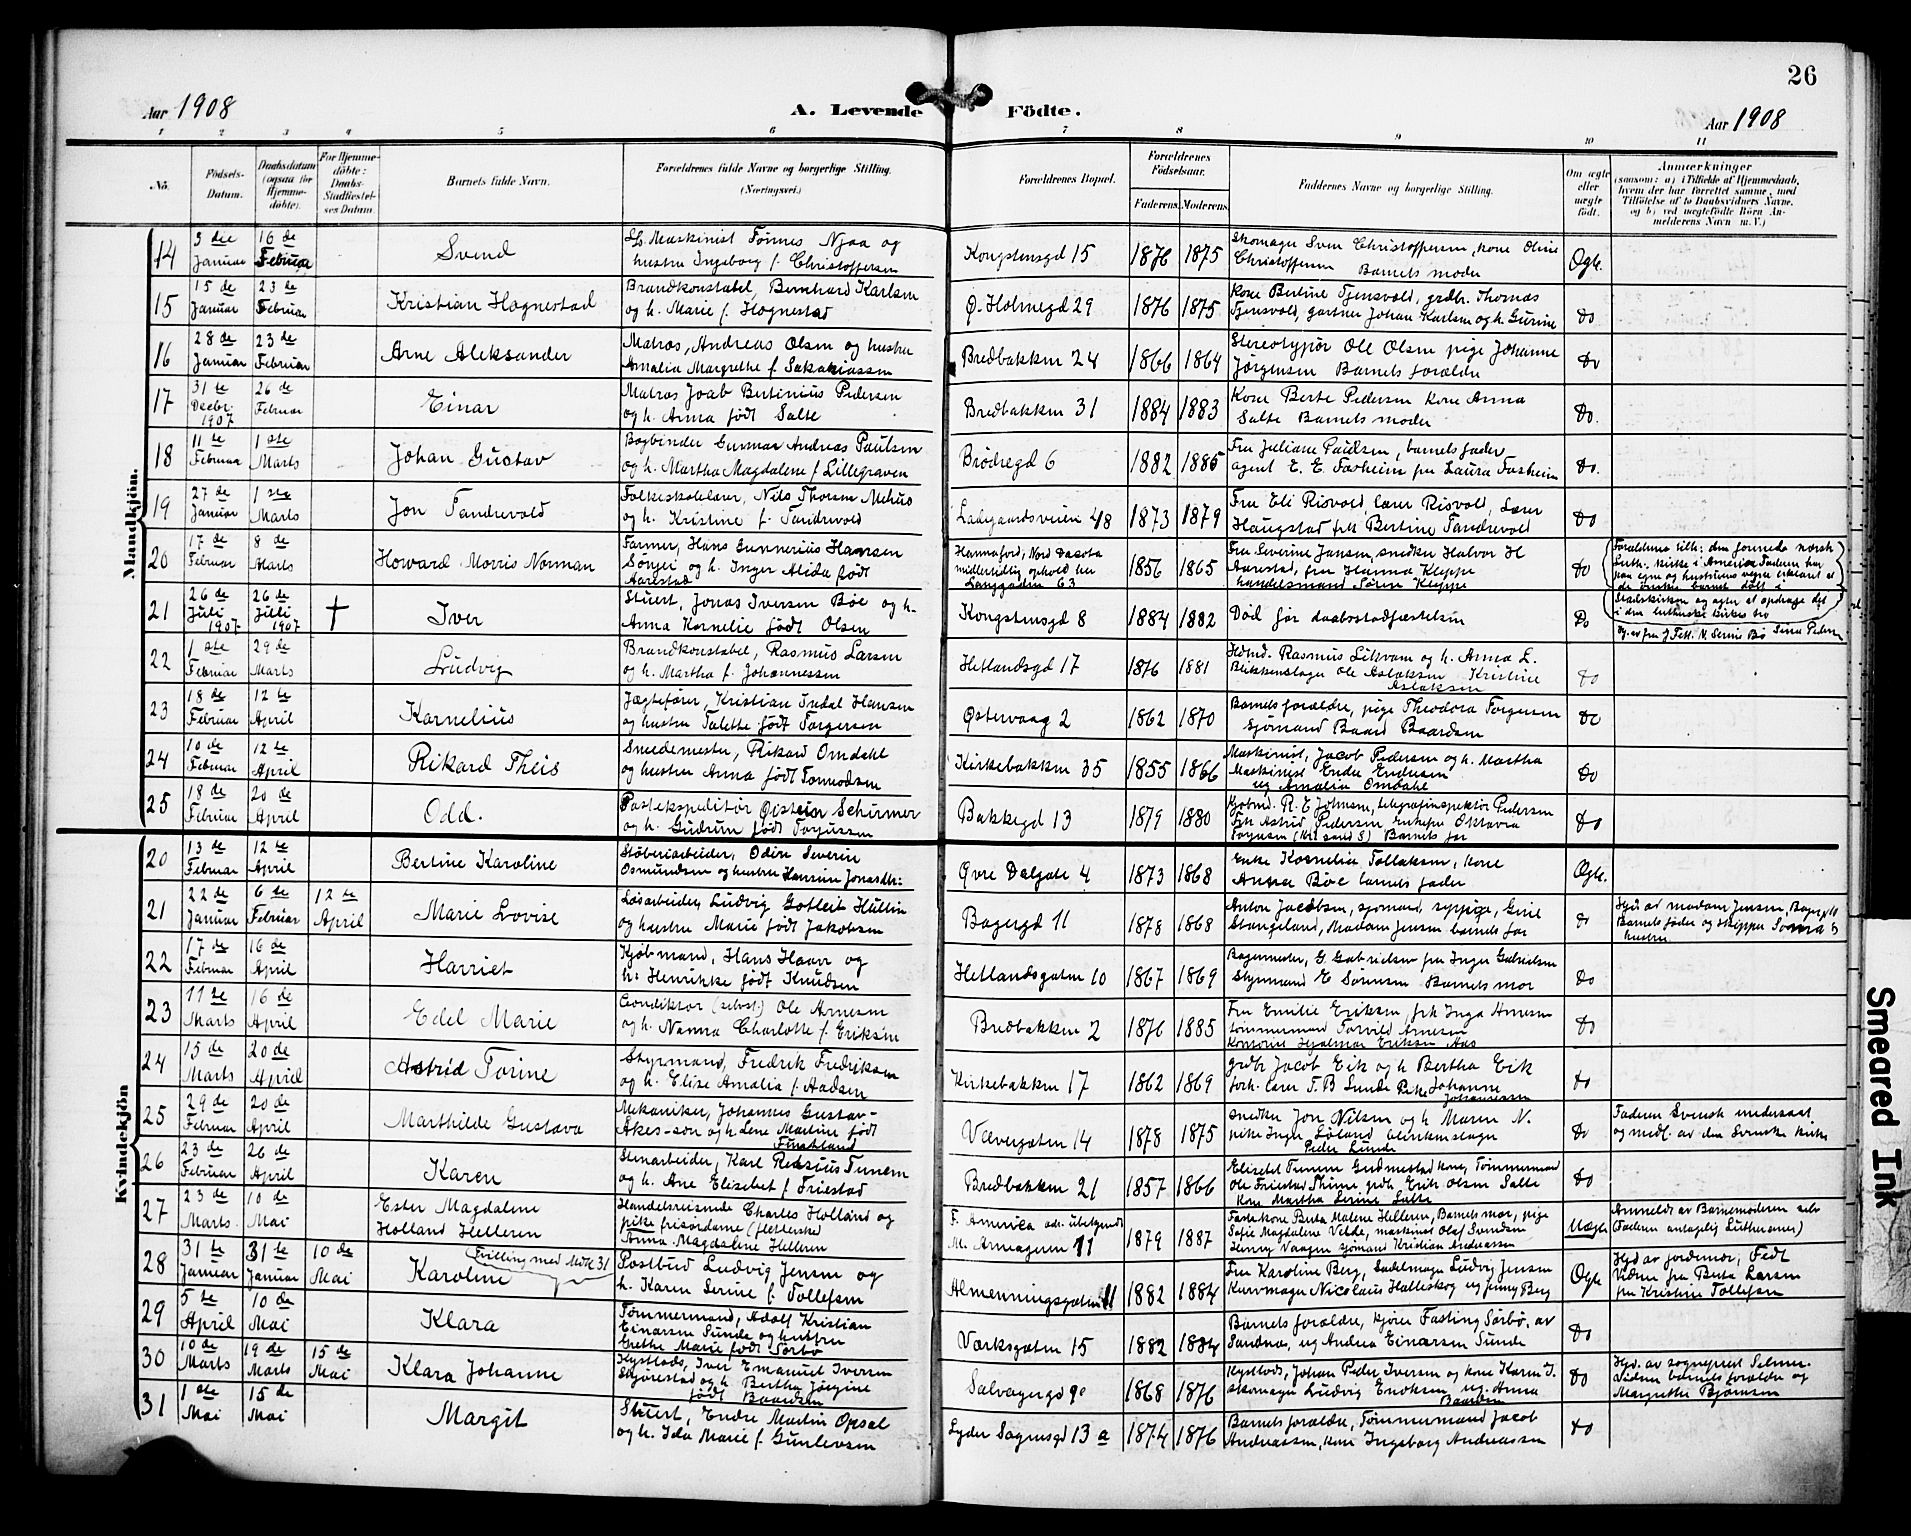 26
Aar 1908
A. Levende
Födte.
Aar 1908
1 2 3 4 5 6 7 8 9 10 11
No.
Födsels-Datum.
Daabsdatum (ogsaa for Hjemmedöbte).
For Hjemmedöbte: Daabs-Stadfæstelses Datum.
Barnets fulde Navn.
Forældrenes fulde Navne og borgerlige Stilling.
(Næringsvei.)
Forældrenes Bopæl.
Forældrenes Födselsaar.
Faderens. Moderens.
Faddernes Navne og borgerlige Stilling.
Om ægte eller uægte født.
Anmærkninger
(saasom: a) i Tilfælde af Hjemmedaab, hvem der har forrettet samme, med Tilföielse af to Daabsvidners Navne, og b) ved uægtefödte Börn Anmelderens Navn m. V.)
Mandkjön.
14 3die Januar 16de Februar Svend Maskinist Tønnes Njaa og hustru Ingeborg f. Christoffersen Kongstensgd 15 1876 1875 Skomager Sven Christoffersen, kone Oline Christoffersen Barnets moder Ægte.
15 15de Januar 23de Februar Kristian Hognestad Brandkonstabel, Bernhard Karlsen og h. Marie f. Hognestad Ø. Holmegd 29 1876 1875 Kone Bertine Tjensvold, grdbr. Thomas Tjensvold, gartner Johan Karlsen og h. Gurine do
16 28de Januar 23de Februar Arne Aleksander Matros, Andreas Olsen og hustru Amalia Margrethe f. Sakariassen Bredbakken 24 1866 1864 Stereotypør Ole Olsen pige Johanne Jørgensen Barnets forældre do
17 31te Decbr. 1907 26de Februar Einar Matros Joab Bertinius Pedersen og h. Anna født Salte Bredbakken 31 1884 1883 Kone Berte Pedersen kone Anna Salte Barnets moder do.
18 11te Februar 1ste Marts Johan Gustav Bogbinder Gunnar Andreas Paulsen og h. Martha Magdalene f. Lillegraven Brødregd 6 1882 1885 Fru Juliane Paulsen, barnets fader, agent E. E. Fasheim fru Laura Fasheim do.
19 27de Januar 1ste Marts Jon Tandrevold Folkeskolelærer, Nils Thorsen Mehus og h. Kristine f. Tandrevold Ladegaardsveien 48 1873 1879 Fru Eli Risvold, lærer Risvold, Lærer Haugstad frk Bertine Tandrevold do
20 17de Februar 8de Marts Howard Morris Norman Farmer, Hans Gunnerius Hansen og h. Inger Alida født Aarestad Hannaford, Nord Dacota midlertidig ophold her Langgaden 63 1856 1865 Fru Severine Jansen, snedker Halvor H Aarestad, fru Hanna Kleppe handelsmand Søren Kleppe do Forældrene tilh: den forenede norsk Luth. kirke i Amerika. Faderen har paa egne og hustrues vegne erklæret at de ønske barnet døbt i Statskirken og agter at opdrage det i den lutherske kirkes tro
21 26de Juli 1907 26de Juli 1907 † Iver Stuert, Jonas Iversen Bøe og h. Anna Kornelie født Olsen Kongstensgd 8 1884 1882 Død før daabsstadfæstelsen Do
22 1ste Februar 29de Marts Ludvig Brandkonstabel, Rasmus Larsen og h. Martha f. Johannessen Hetlandsgd 17 1876 1881 Rasmus Likvam og h. Anna L. Blikkenslager Ole Aslaksen Kristine Aslaksen do
23 18de Februar 12te April Kornelius Jægtefører, Kristian Indal Hansen og hustru Talette født Torgersen Østervaag 2 1862 1870 Barnets forældre, pige Theodora Torgersen sjømand Baard Baardsen do
24 10de Februar 12te April Rikard Theis Smedemester, Rikard Omdahl og hustru Anna født Tonnodsen Kirkebakken 35 1855 1866 Maskinist, Jacob Pedersen og h. Martha Maskinist Endre Endresen og Amalia Omdahl do
25 18de Februar 20de April Odd. Postekspeditør Øistein Schirmer og h. Gudrun født Torgussen Bakkegd 13 1879 1880 R. E Johnsen, telegrafinspektør Pedersen Frk Astrid Pedersen Enkefru Oktavia (Kr.sand S) Barnets far do
Kvindekjön
20 13de Februar 12te April Bertine Karoline Støberiarbeider, Odin Severin Osmundsen og hustru Hansine Jonasdtr: Øvre Dalgate 4 1873 1868 Enke Kornelia Tollaksen, kone Anna Bøe barnets fader Ægte.
21 22de Januar 6te Februar 12te April Marie Lovise Løsarbeider, Ludvig Gotleit Hultin og hustru Marie født Jakobsen Bagergd 11 1878 1868 Anton Jacobsen, sjømand, sypige, Gine Stangeland, Madam Jensen barnets far do Hjd av madam Jensen, Bagergd 10 Barnets fader og skipper hustru
22 17de Februar 16de April Harriet Kjøbmand, Hans Haave og h: Henrikke født Knudsen Hetlandsgaten 10 1867 1869 Bagermester, G. Gabrielsen fru Inger Gabrielsen Styrmand E Sørensen Barnets mor do
23 11te Marts 16de April Edel Marie Conduktør Ole Arnesen og h. Nanna Charlotte f. Eriksen Bredbakken 2 1876 1885 Fru Emilie Eriksen, frk Inga Arnesen tømmermand Torvild Arnesen Kontorist Hjalmar Eriksen Aas do
24 15de Marts 20de April Astrid Torine Styrmand, Fredrik Fredriksen og h. Elise Amalia f. Aadsen Kirkebakken 17 1862 1869 grdbr Jacob Eik og h Bertha Eik forh. lærer T. B Lunde Pike Johanne Johannessen do
25 29de Februar 20de April Marthilde Gustava Mekaniker, Johannes Gustav-Akes-son og h. Lene Martine født Fuatland Vævergaten 14 1878 1875 snedker Jon Nilsen og h Maren N. pike Inger Løland blikkenslager Peder Lunde do Faderen Svensk undersaat og medl. av den Svenske kirke
26 23de Februar 26de April Karen Stenarbeider, Karl Tunem og h. Ane Elisebet f. Friestad Bredbakken 21 1857 1866 Elisebet Tunem Gudmestad kone, Tømmermand Ole Friestad Thime grdbr Erik Olsen Salte Kone Martha Serine Salte do
27 23de Marts. 10de Mai Ester Magdalene Holland Helleren Handelsreisende Charles Holland og pike frisørdame (fletterske) Anna Magdalene Helleren F. America adr. ubekjendt M. Arneageren 11 1879 1887 Fadr kone Berta Malene Helleren, Barnets mor, pige Sofie Magdalene Velde, maskinist Olaf Svendsen Henry Vaagen sjømand Kristian Andreassen Uægte Anmeldt av Barnemoderen selv (Faderen antagelig Lutheraner)
28 31te Januar 31te Januar 10de Mai Tvilling med No 31 Karoline Postbud Ludvig Jensen og h. Karen Serine f. Tollefsen Almenningsgaten 11 1882 1884 Fru Karoline Berg, Sadelmager Ludvig Jensen Kurvmager Nicolaus Halleskog og Jenny Berg Ægte Hjd av jordemor, Fedt Vidner fru Berta Larsen fru Kristine Tollefsen
29 5te April 10de Mai Klara Tømmermand, Adolf Kristian Einarsen Sunde og hustru Grethe Marie født Sørbø Værksgaten 15 1882 1884 Barnets forældre, kjører Fasting Sørbø, av Sandnæs, og Andrea Einarsen Sunde do
30 10de Marts 19de Marts 15de Mai Klara Johanne Kystlods, Iver Emanuel Iversen Skjørestad og h. Bertha Jørgine født Baardsen Salvagergd 9e 1868 1876 Kystlods, Johan Peder Iversen og kone Karen I. skomager Ludvig Enoksen og Anna Baardsen do Hjd. av sogneprest Selmer. Vidner barnets forældre og Margrethe Bjørnsen
31 1ste Mai 15de Mai Margit Stuert, Endre Martin Opsal og h. Ida Marie f. Gunlevsen Lyder Sagensgd 13a 1874 1876 Barnets forældre, Tømmermand Jacob Andreassen, kone Ingeborg Andreassen do
Smeared Ink